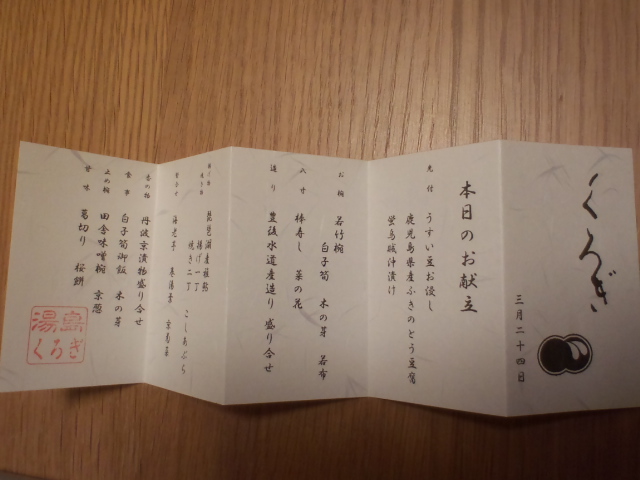 くろぎ
三月二十四日
本日のお献立
先付 うすい豆お浸し
鹿児島県産ふきのとう豆腐
蛍烏賊沖漬け
お椀 若竹椀
白子筍 木の芽 若布
八寸 棒寿し 菜の花
造り 豊後水道産造り盛り合せ
揚げ物
焼き物
琵琶湖産稚鮎
揚げ一丁 こしあぶら
焼き二丁
海老芋 京菊菜
香の物 丹波京漬物盛り合せ
食事 白子筍御飯 木の芽
止め椀 田舎味噌椀 京葱
甘味 葛切り 桜餅
湯島
くろぎ